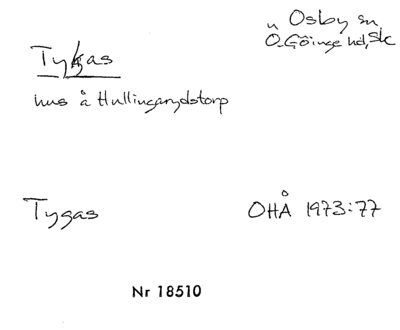 n Osby sn
Ö. Göinge hd, Sk
Tykas
hus å Hullingarydstorp
Tygas
OHÅ 1973:77
Nr 18510